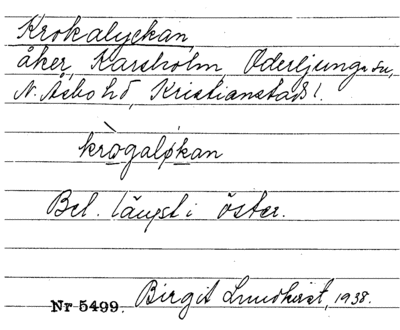 Krokalyckan,
åker, Karsholm, Oderljunga sn,
N. Åsbo hd, Kristianstads l.
krògaløkan
Bel. längst i öster.
Nr 5499. Birgit Lundkvist, 1938.